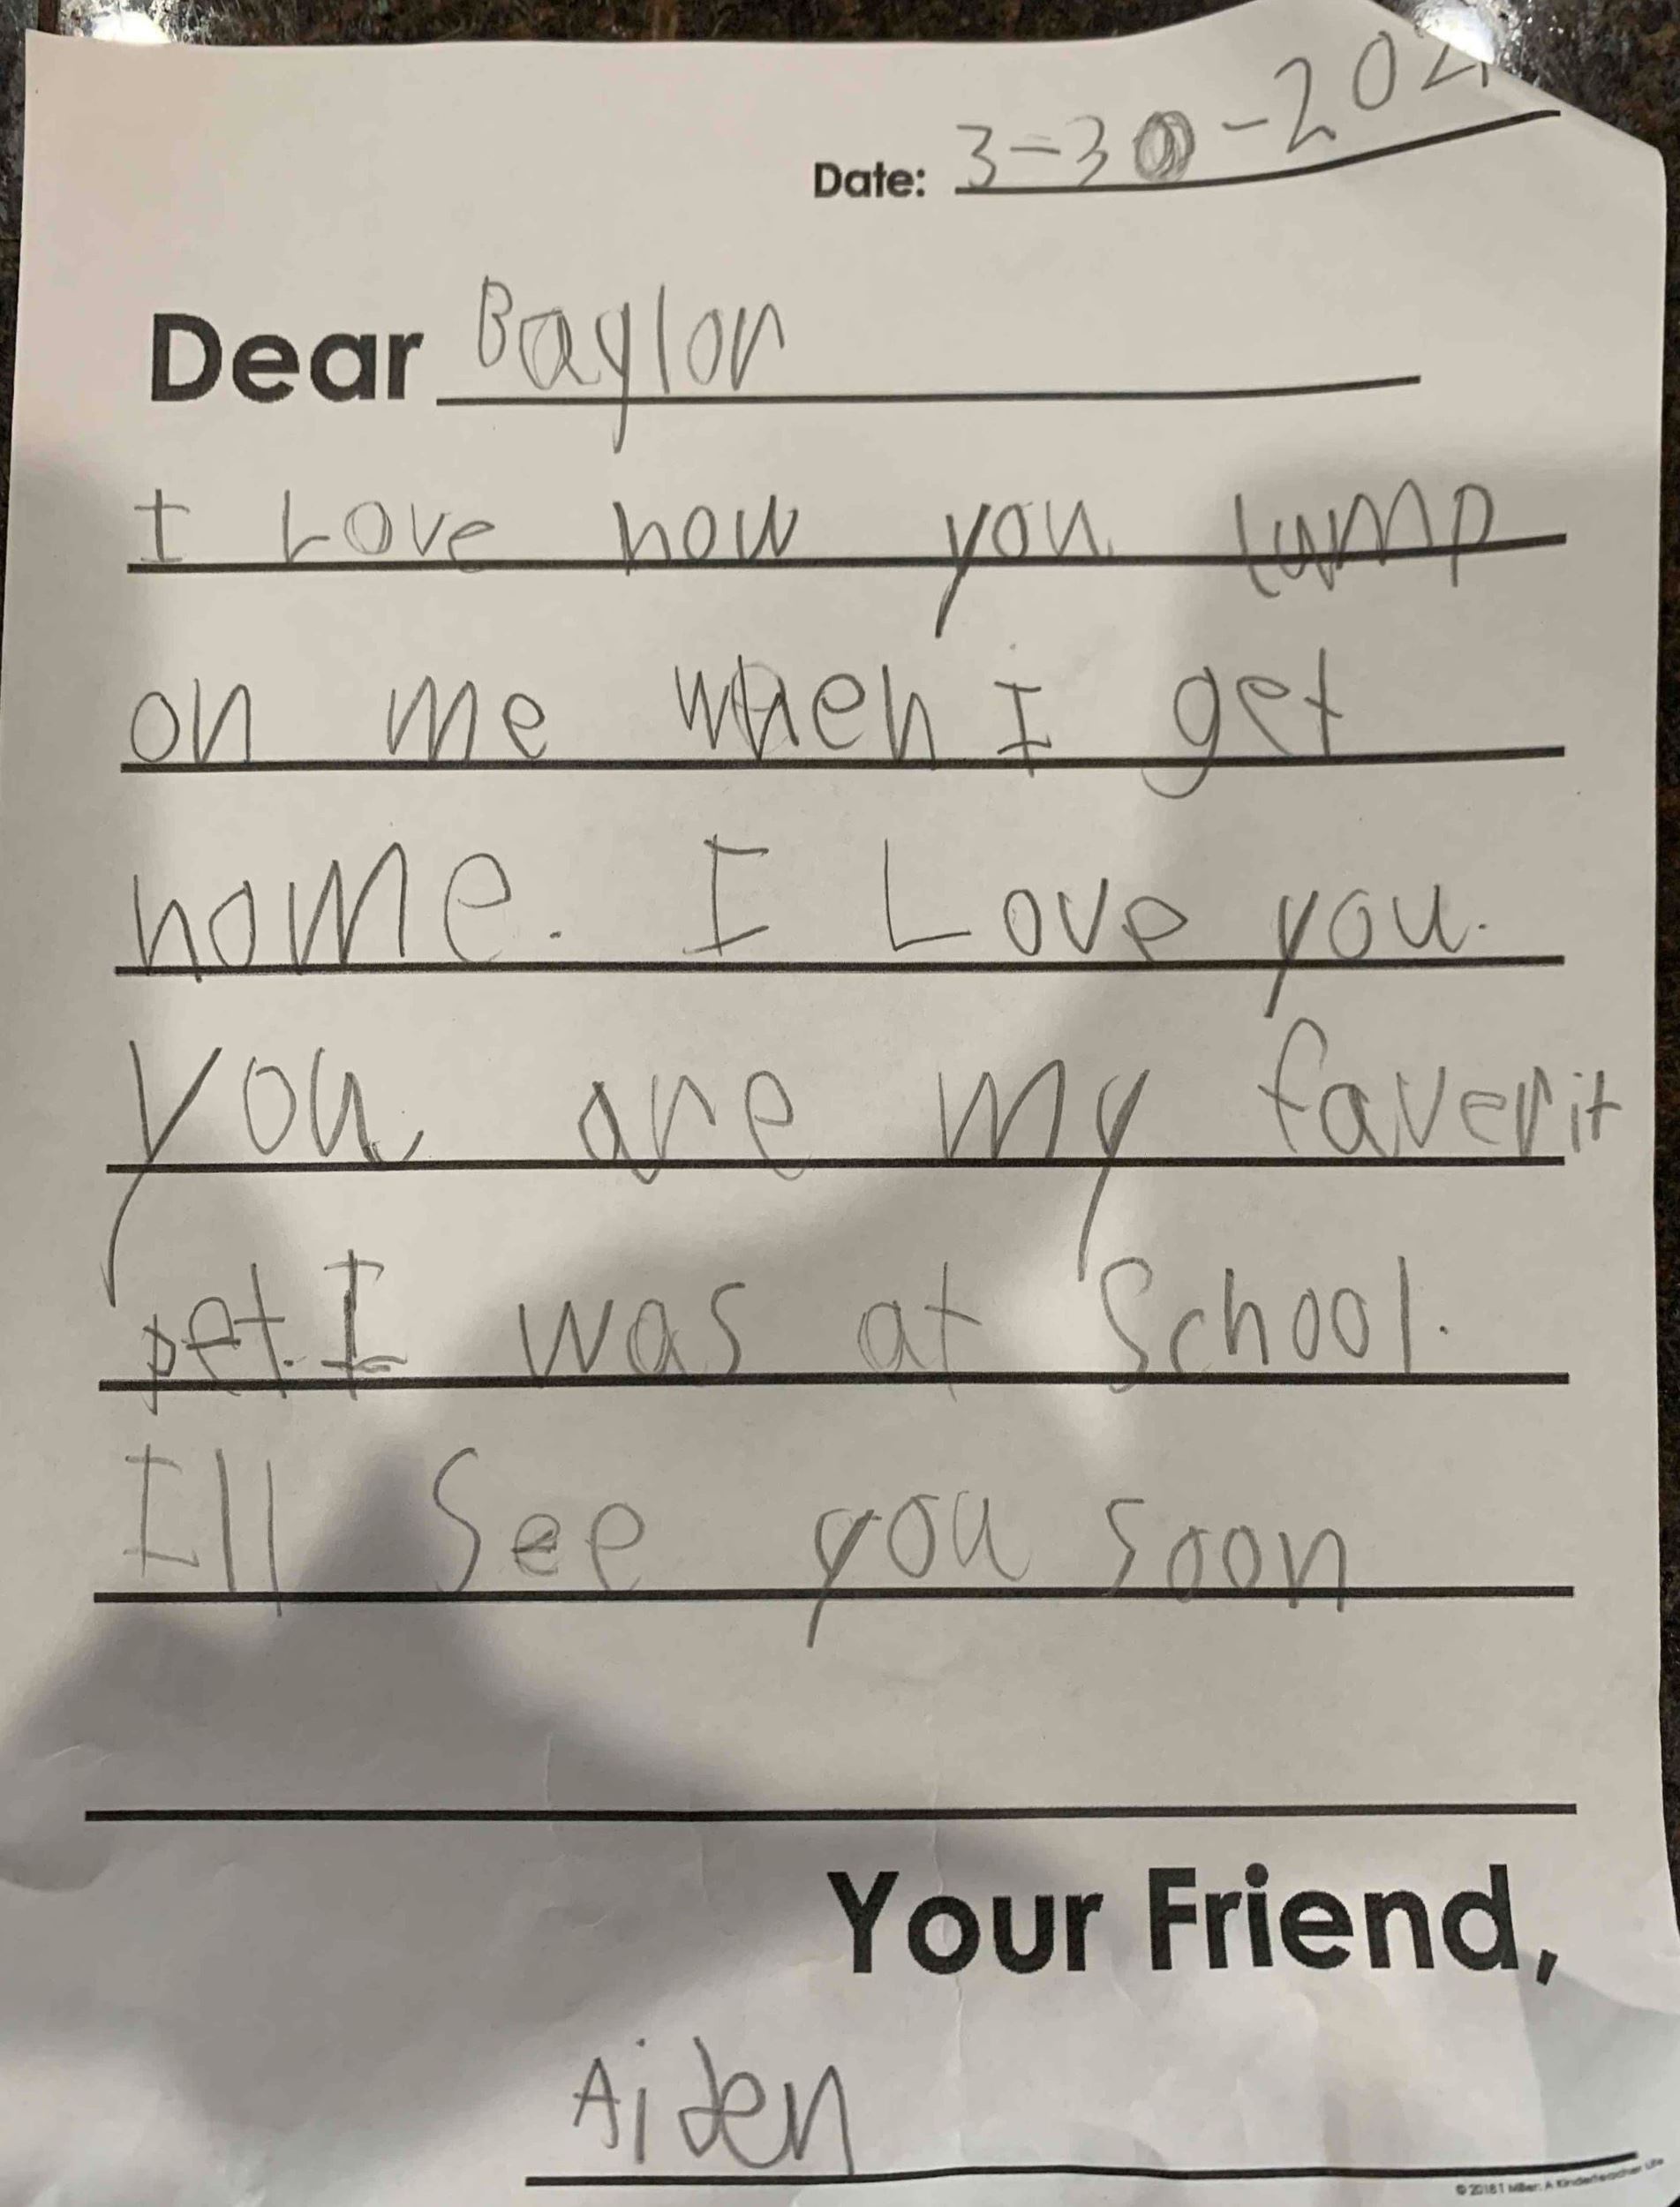 Date: 3-30-2021
Dear Baylor
I Love how you Jump
on me when I get
home. I Love you.
you are my faverit
pet. I was at School.
I'll See you soon
Your Friend,
Aiden
© 2018 T Miller: A Kinderteacher Life